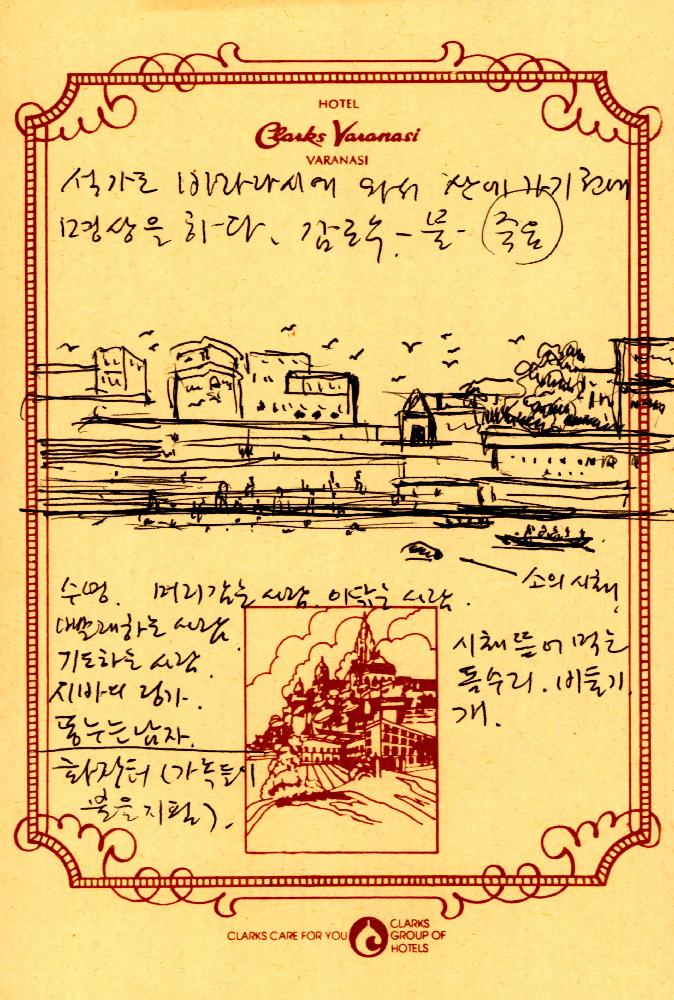 HOTEL
Clarks Varanasi
VARANASI
석가도 바라나시에 와서 산에 가기 전에
명상을 하다. 감로수 - 불 - 죽음
소의 시체
수영. 머리감는 사람. 이닦는 사람.
빨래하는 사람.
기도하는 사람.
시바의 링가.
똥누는 남자.
화장터 (가족들이
불을 지핌).
시체 뜯어 먹는
독수리. 비둘기.
개.
CLARKS CARE FOR YOU
CLARKS
GROUP OF
HOTELS